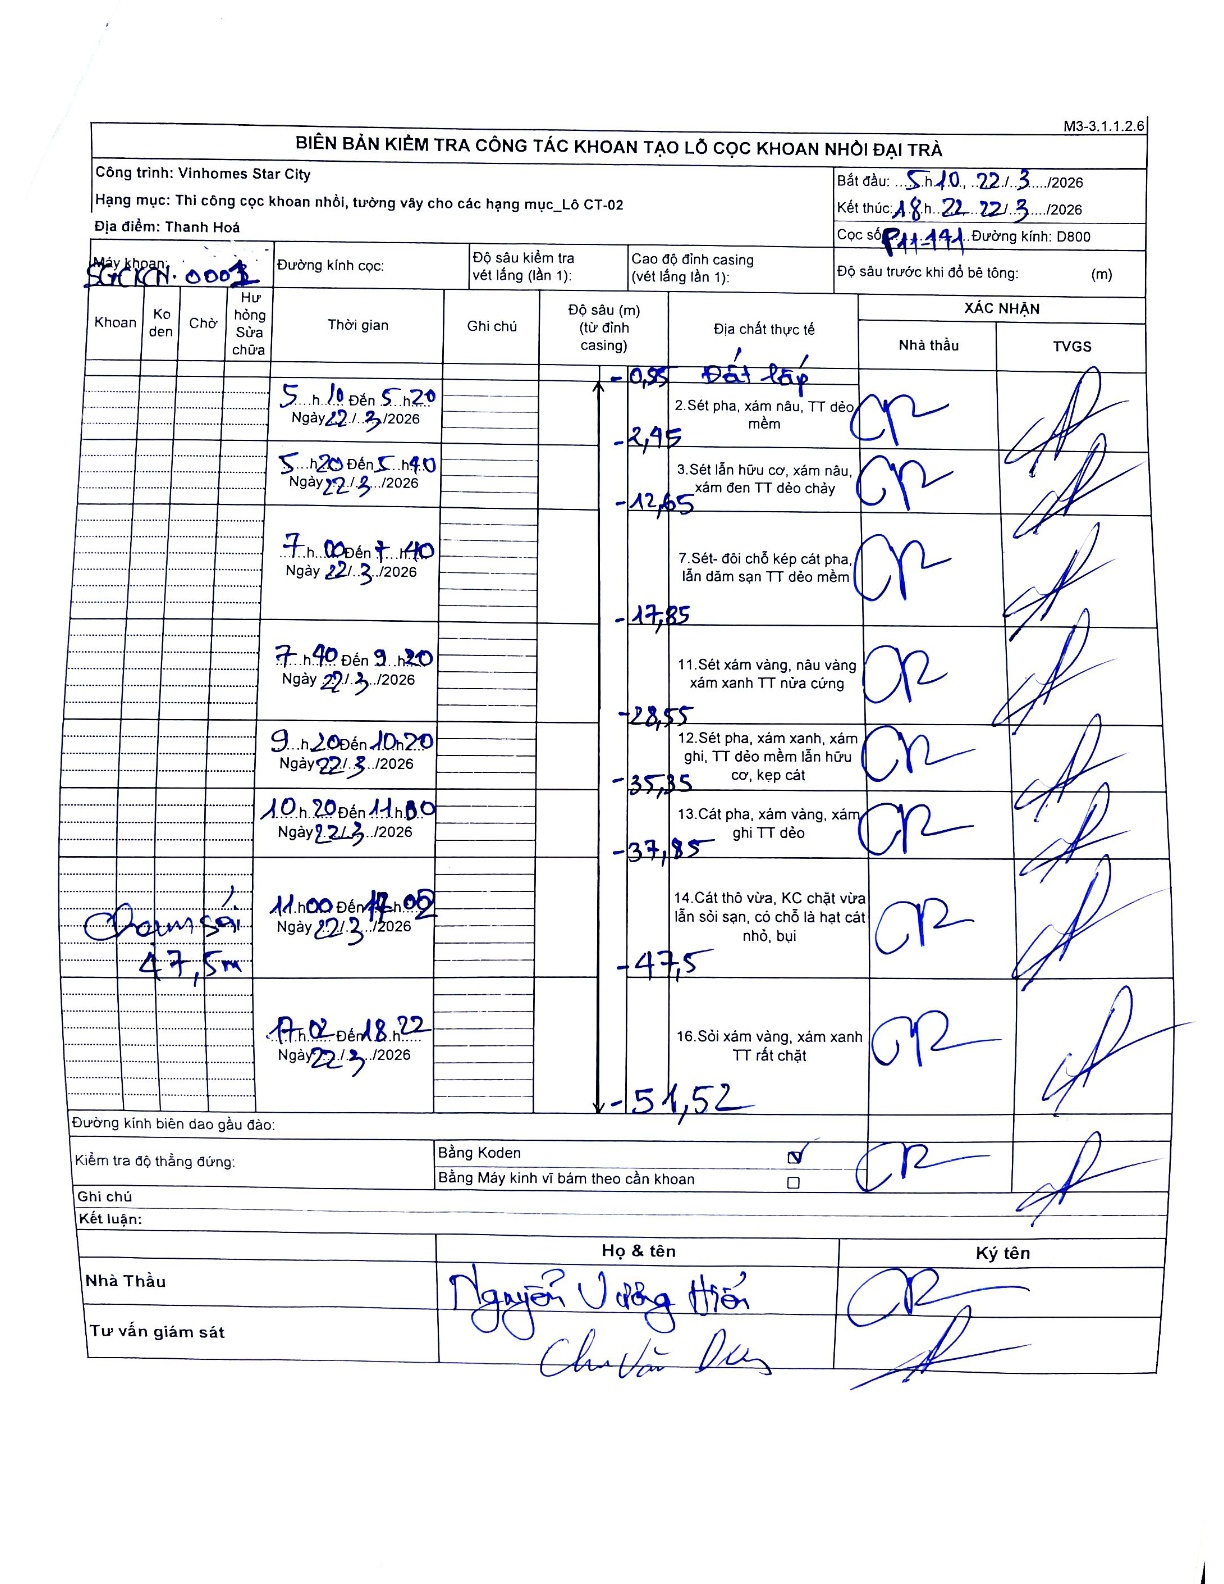 M3-3.1.1.2.6
BIÊN BẢN KIỂM TRA CÔNG TÁC KHOAN TẠO LỖ CỌC KHOAN NHỒI ĐẠI TRÀ
Công trình: Vinhomes Star City
Hạng mục: Thi công cọc khoan nhồi, tường vây cho các hạng mục_Lô CT-02
Địa điểm: Thanh Hoá
Bắt đầu: 5 h 10, 22/ 3 /2026
Kết thúc: 18 h 22 22/ 3 /2026
Cọc số P11-141 Đường kính: D800
Máy khoan:
SGCKCN. 0001
Đường kính cọc:
Độ sâu kiểm tra vét lắng (lần 1):
Cao độ đỉnh casing (vét lắng lần 1):
Độ sâu trước khi đổ bê tông: (m)
Khoan
Ko den
Chờ
Hư hỏng Sửa chữa
Thời gian
Ghi chú
Độ sâu (m) (từ đỉnh casing)
Địa chất thực tế
XÁC NHẬN
Nhà thầu
TVGS
-0,95 Đất lấp
5 h 10 Đến 5 h 20
Ngày 22/ 3 /2026
2.Sét pha, xám nâu, TT dẻo
mềm
-2,45
5 h 20 Đến 5 h 40
Ngày 22/ 3 /2026
3.Sét lẫn hữu cơ, xám nâu,
xám đen TT dẻo chảy
-12,65
7 h 00 Đến 7 h 40
Ngày 22/ 3 /2026
7.Sét- đôi chỗ kép cát pha,
lẫn dăm sạn TT dẻo mềm
-17,85
7 h 40 Đến 9 h 20
Ngày 22/ 3 /2026
11.Sét xám vàng, nâu vàng
xám xanh TT nửa cứng
-28,55
9 h 20 Đến 10 h 20
Ngày 22/ 3 /2026
12.Sét pha, xám xanh, xám
ghi, TT dẻo mềm lẫn hữu
cơ, kẹp cát
-35,35
10 h 20 Đến 11 h 00
Ngày 22/ 3 /2026
13.Cát pha, xám vàng, xám
ghi TT dẻo
-37,85
Chạm sỏi
47,5m
11 h 00 Đến 17 h 02
Ngày 22/ 3 /2026
14.Cát thô vừa, KC chặt vừa
lẫn sỏi sạn, có chỗ là hạt cát
nhỏ, bụi
-47,5
17 h 02 Đến 18 h 22
Ngày 22/ 3 /2026
16.Sỏi xám vàng, xám xanh
TT rất chặt
-51,52
Đường kính biên dao gầu đào:
Kiểm tra độ thẳng đứng:
Bằng Koden
Bằng Máy kinh vĩ bám theo cần khoan
Ghi chú
Kết luận:
Họ & tên
Ký tên
Nhà Thầu
Nguyễn Vương Hiển
Tư vấn giám sát
Chu Văn